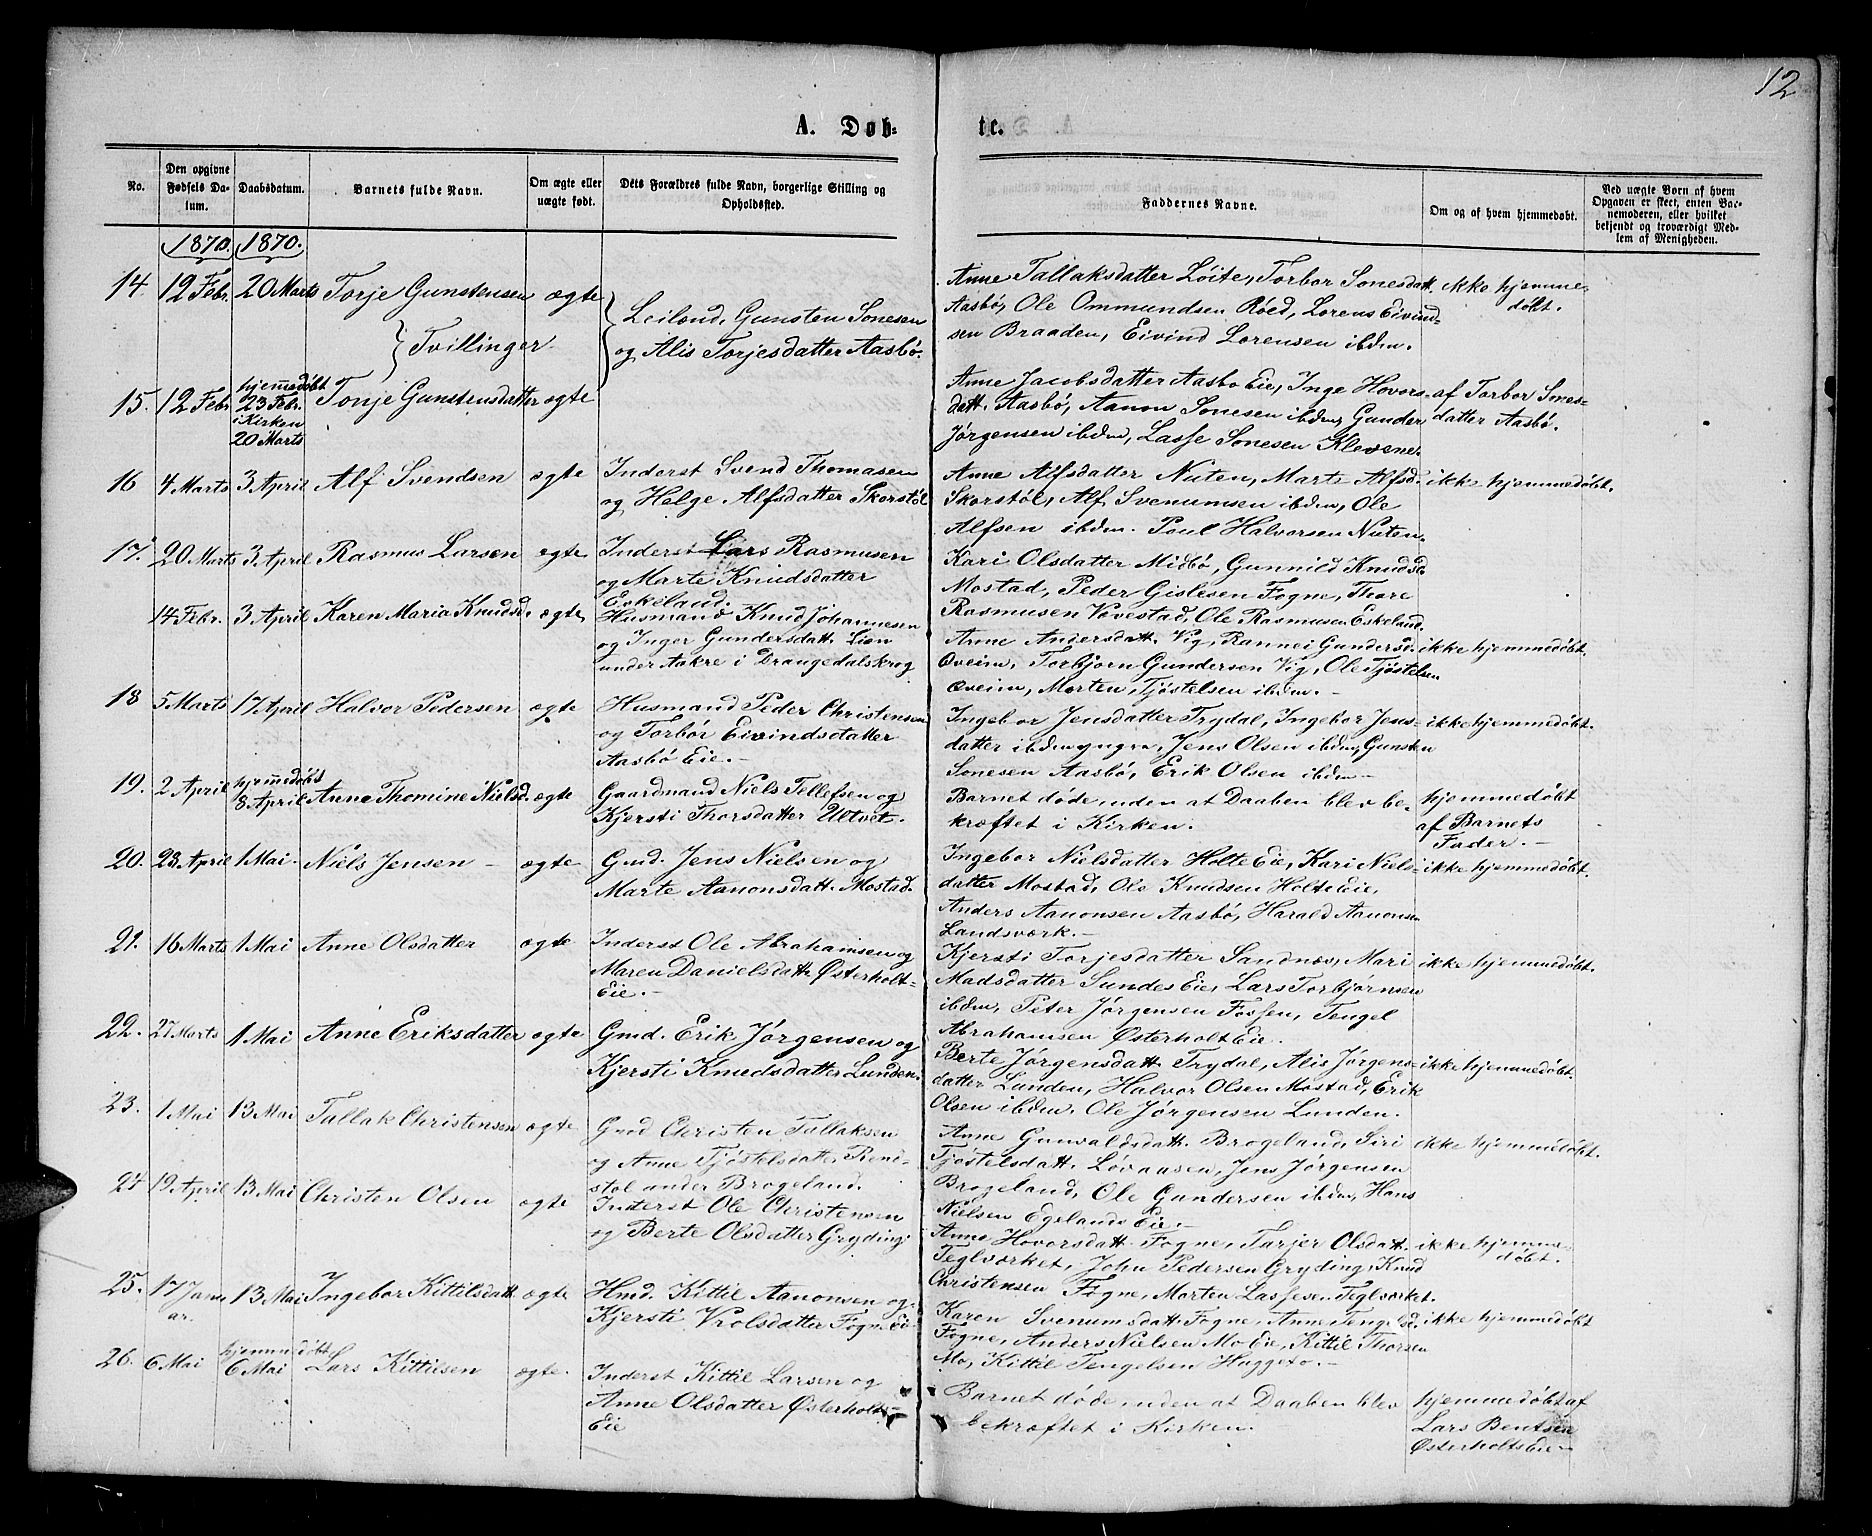 12
A. Døb-
te.
No.
Den opgivne Fødsels Datum.
Daabsdatum.
Barnets fulde Navn.
Om ægte eller uægte født.
Dets Forældres fulde Navn, borgerlige Stilling og Opholdssted.
Faddernes Navne.
Om og af hvem hjemmedøbt.
Ved uægte Børn af hvem Opgaven er skeet, enten Barnemoderen, eller hvilket bekjendt og troværdigt Medlem af Menigheden.
1870. 1870.
14. 12 Febr. 20 Marts Torje Gunstensen ægte
} Tvillinger.
Leilænd. Gunsten Sonesen
og Alis Torjesdatter Aasbø.
Anne Tallaksdatter Löite, Torbor Sonesdatt.
Aasbø, Ole Ommundsen Röed, Lorens Eivind-
sen Braaden, Eivind Lorensen ibdm.
ikke hjemme-
døbt.
15. 12 Febr. hjemmedøbt
23 Febr.
i Kirken
20 Marts
Tonje Gunstensdatter ægte
Anne Jacobsdatter Aasbø Eie, Inge Hovors-
datt. Aasbø, Aanon Sonesen ibdm, Gunder
Jørgensen ibdm, Lasse Sonesen Klevene.
af Torbor Sones-
datter Aasbø.
16 4 Marts 3 April Alf Svendsen ægte
Inderst Svend Thomasen
og Helge Alfsdatter Skorstöl
Anne Alfsdatter Nuten, Marte Alfsd.
Skorstöl, Alf Svenumsen ibdm, Ole
Alfsen ibdm. Poul Halvorsen Nuten.
ikke hjemmedøbt.
17. 20 Marts 3 April Rasmus Larsen ægte
Inderst Lars Rasmusen
og Marte Knudsdatter
Eskeland.
Kari Olsdatter Midbø, Gunnild Knudsd.
Mostad, Peder Gislesen Fogne, Thore
Rasmusen Vovestad, Ole Rasmusen Eskeland.
14 Febr. 3 April Karen Maria Knudsd. ægte
Husmand Knud Johannesen
og Inger Gundersdatt. Lien
under Aakre i Drangedalskrog
Anne Andersdatt. Vig, Rannei Gundersd.
Øveim, Torbjørn Gundersen Vig, Ole Tjøstelsen
Øveim, Morten Tjøstelsen ibdm. -
ikke hjemmedøbt.
18 5 Marts 17 April Halvor Pedersen ægte
Husmand Peder Christensen
og Torbør Eivindsdatter
Aasbø Eie. -
Ingebor Jensdatter Trydal, Ingebor Jens-
datter ibdm yngre, Jens Olsen ibdm, Gunsten
Sonesen Aasbø, Erik Olsen ibdm -
ikke hjemmedøbt.
19. 2 April hjemmedøbt
8 April
Anne Thomine Nielsd. ægte
Gaardmand Niels Tellefsen og
Kjersti Thorsdatter Ultvet.
Barnet døde, uden at Daaben blev be-
kræftet i Kirken.
hjemmedøbt
af Barnets
Fader. -
20. 23 April 1 Mai. Niels Jensen - ægte
Gmd. Jens Nielsen og
Marte Aanonsdatt. Mostad.
Ingebor Nielsdatter Holte Eie, Kari Niels-
datter Mostad, Ole Knudsen Holte Eie,
Anders Aanonsen Aasbø, Harald Aanonsen
Landsværk. -
ikke hjemmedøbt.
21. 16 Marts 1 Mai Anne Olsdatter ægte
Inderst Ole Abrahamsen og
Maren Danielsdatt. Østerholt-
Eie. -
Kjersti Torjesdatter Sandnæs, Mari
Madsdatter Sundes Eie, Lars Torbjørnsen
ibdm, Peter Jørgensen Fossen, Tengel
Abrahamsen Østerholt Eie.
ikke hjemmedøbt.
22. 27 Marts 1 Mai Anne Eriksdatter ægte
Gmd. Erik Jørgensen og
Kjersti Knudsdatter Lunden.
Berte Jørgensdatt. Trydal, Alis Jørgens-
datter Lunden, Halvor Olsen Mostad, Erik
Olsen ibdm. Ole Jørgensen Lunden.
ikke hjemmedøbt.
23. 1 Mai 13 Mai Tallak Christensen ægte
Gmd Christen Tallaksen
og Anne Tjøstelsdatt. Rend-
stöl under Brogeland.
Anne Gunvaldsdatt. Brogeland, Siri
Tjøstelsdatt. Løvaasen, Jens Jørgensen
Brogeland, Ole Gundersen ibdm, Hans
Nielsen Egelands Eie. -
ikke hjemmedøbt.
24 19 April 13 Mai Christen Olsen ægte
Inderst Ole Christensen
og Berte Olsdatter Gryding.
Anne Hovorsdatt. Fogne, Tarjer Olsdatt.
Teglværket, John Pedersen Gryding, Knud
Christensen Fogne, Morten Lassesen Teglværket.
ikke hjemme-
døbt.
25. 17 Janu
ar.
13 Mai Ingebor Kittilsdatt. ægte
Hmd. Kittil Aanonsen og
Kjersti Vrolsdatter Fogne Eie
Karen Svenumsdatt. Fogne, Anne Tengelsd.
Fogne, Anders Nielsen Mo Eie, Kittil Thorsen
Mo, Kittil Tengelsen Huggeto. -
ikke hjemmedøbt
26. 6 Mai hjemmedøbt
6 Mai
Lars Kittilsen ægte.
Inderst Kittil Larsen og
Anne Olsdatter Østerholts-
Eie
Barnet døde, uden at Daaben blev
bekræftet i Kirken.
hjemmedøbt af
Lars Bentsen
Østerholts Eie -